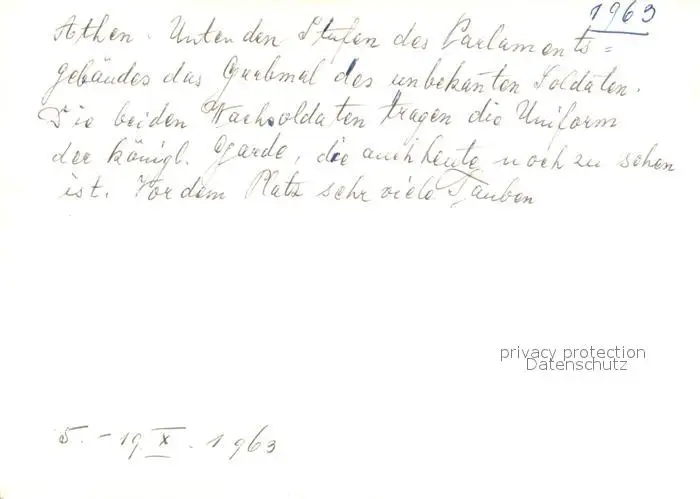 1963
Athen. Unten den Stufen des Parlaments=
gebäudes das Grabmal des unbekanten Soldaten.
Die beiden Wachsoldaten tragen die Uniform
der königl. Garde, die auch heute noch zu sehen
ist. Vor dem Platz sehr viele Tauben
privacy protection
Datenschutz
5. - 19. X. 1963